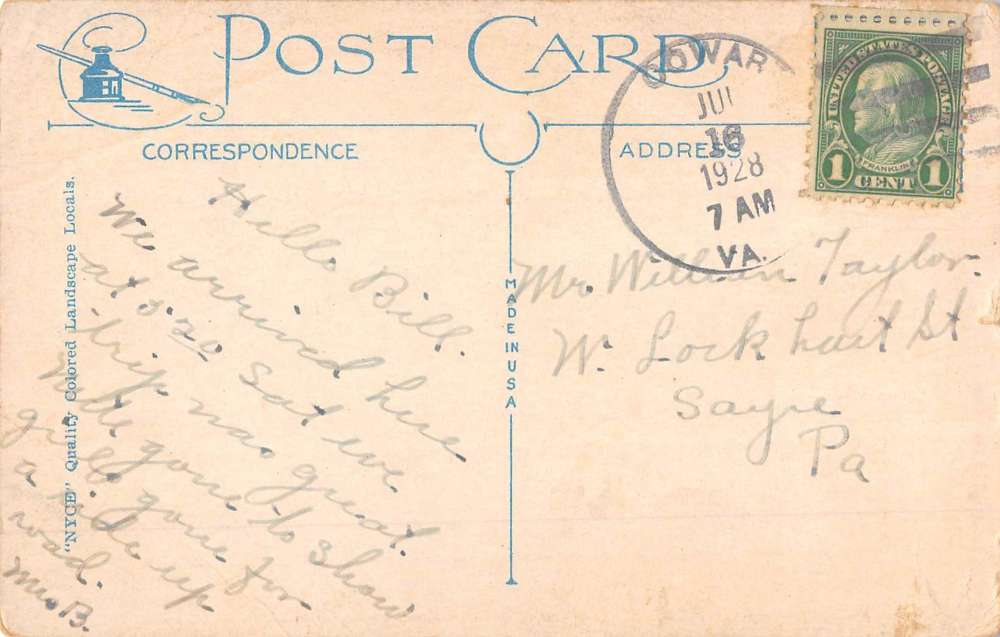 POST CARD
CORRESPONDENCE
ADDRESS
"NYCE" Quality Colored Landscape Locals.
MADE IN USA
JUL
16
1928
7 AM
VA.
UNITED STATES POSTAGE
FRANKLIN
1 CENT 1
Hello Bill.
We arrived here
at 5.20 Sat eve
trip was great.
gone to Show
gone for
a ride up
road.
Mrs B.
Mr. William Taylor.
W. Lockhart St
Sayre
Pa